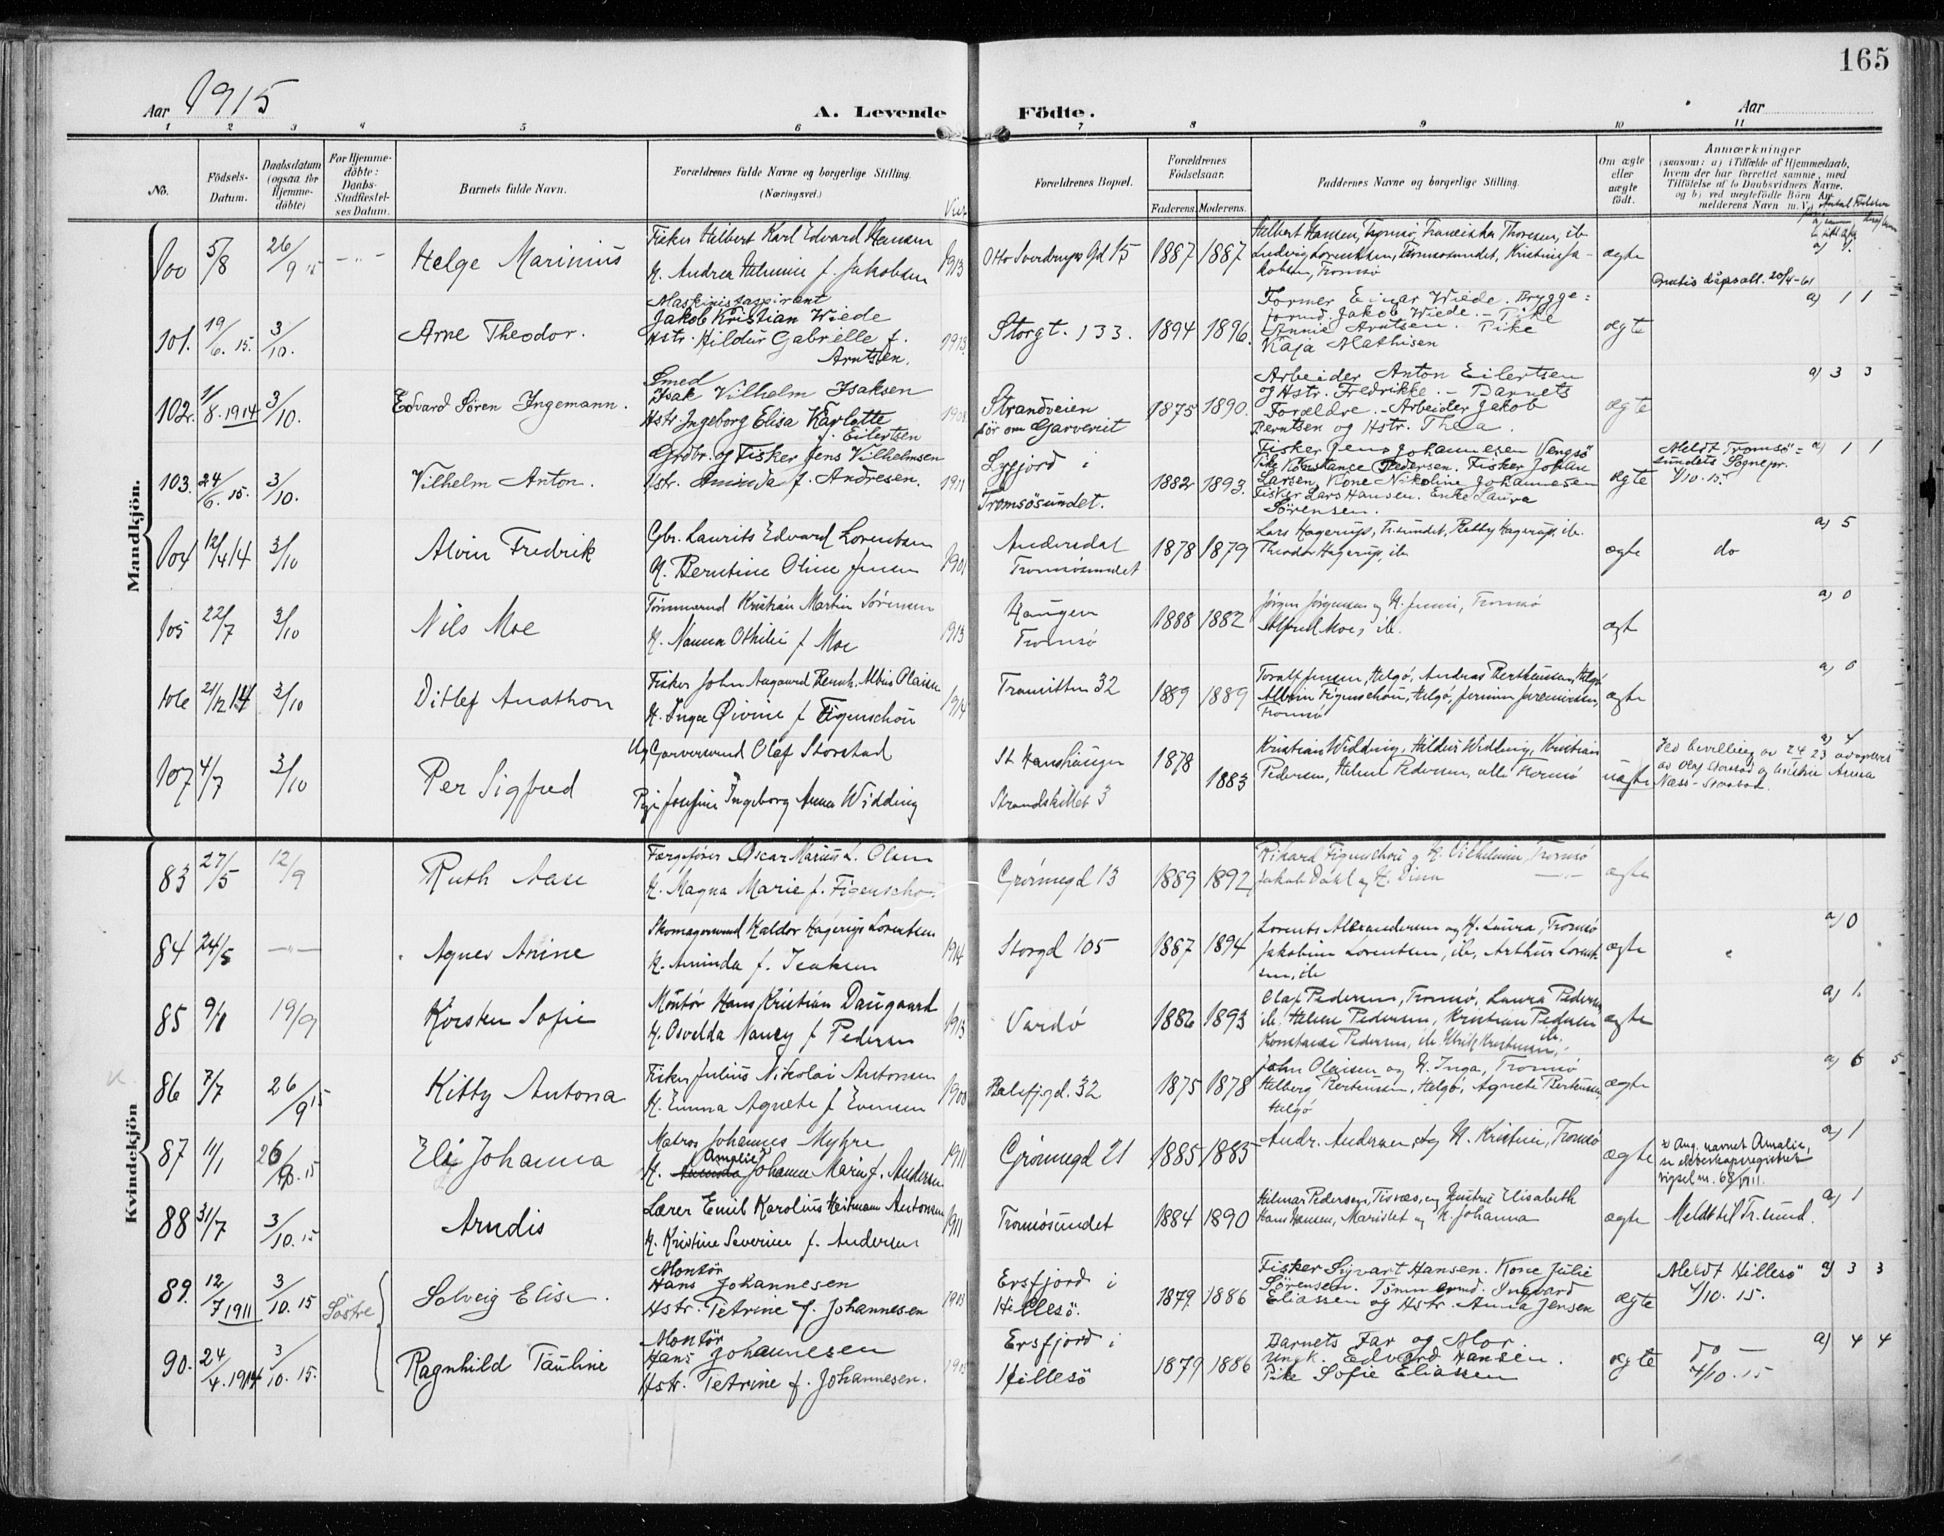 165
Aar 1915
A. Levende Födte.
Aar
1 2 3 4 5 6 7 8 9 10 11
No.
Födsels-Datum.
Daabsdatum (ogsaa for Hjemme-döbte)
For Hjemme-döbte: Daabs-Stadfæstel-ses Datum.
Barnets fulde Navn.
Forældrenes fulde Navne og borgerlige Stilling. (Næringsvei.)
Forældrenes Bopæl.
Forældrenes Födselsaar.
Faderens. Moderens.
Faddernes Navne og borgerlige Stilling.
Om ægte eller uægte födt.
Anmærkninger
(saasom: a) i Tilfælde af Hjemmedaab,
hvem der har forrettet samme, med
Tilföielse af to Daabsvidners Navne,
og b) ved uægtefödte Börn An-
melderens Navn m. V.)
Mandkjön.
100 5/8 26/9 15 Helge Marinius
Fisker Helbert Karl Edvard Hansen
H. Andrea Helmine f. Jakobsen 1913
Otto Sverdrups Gd 15 1887 1887
Helbert Hansen, Tromsö, Franciska Thoresen, ib.
Ludvig Lorentsen, Tromsösundet, Kristine Ja-
kobsen, Tromsö
ægte
Gratis dåpsatt. 20/4-61
101. 19/6. 15. 3/10. Arne Theodor.
Maskinistaspirant
Jakob Kristian Wiede
Hstr. Hildur Gabrielle f.
Arntsen. 1913
Storgt. 133. 1894 1896.
Former Einar Wiede. Brygge=
formd. Jakob Wiede. - Pike
Annie Arntsen. Pike
Kaja Mathisen
ægte a) 1 1
102. 1/8. 1914 3/10. Edvard Sören Ingemann.
Smed
Isak Vilhelm Isaksen
Hstr Ingeborg Elisa Karlotte
f. Eilertsen
Strandveien
sör om Garveriet 1875 1890.
Arbeider Anton Eilertsen
og Hstr. Fredrikke. - Barnets
Forældre. - Arbeider Jakob
Berntsen og Hstr. Thea.
ægte a) 3 3
103. 24/6. 15. 3/10. Vilhelm Anton.
Grdbr. og Fisker Jens Vilhelmsen
Hstr. Aminda f. Andresen. 1911
Lyfjord i
Tromsösundet. 1882 1893.
Fisker Jens Johannesen Vengsö
Pike Konstance Pedersen. Fisker Johan
Larsen, Kone Nikoline Johannesen
Fisker Lars Hansen. Enke Laura
Sörensen.
ægte
Meldt Tromsö=
sundets Sognepr.
4/10. 15. a) 1 1
104 12/4 14 3/10 Alvin Fredrik
Gbr. Laurits Edvard Lorentsen
H. Berntine Oline Jensen 1901
Andersdal
Tromsösundet 1878 1879
Lars Hagerup, Tr.sundet, Betty Hagerup, ib.
Theodor Hagerup, ib.
ægte do a) 5
105 22/7 3/10 Nils Moe
Tömmermd Kristian Martin Sörensen
H. Nanna Othilie f Moe 1913
Haugen
Tromsö 1888 1882
Jörgen Jörgensen og H. Jenni, Tromsö
Alfred Moe, ib.
ægt a) 0
106 21/12 14 3/10 Ditlef Anathon
Fisker John Aagaard Bernh. Albius Olaisen
H. Inga Öivine f Figenschou 1914
Transitten 32 1889 1889
Toralf Jensen, Helgö, Andreas Bertheussen, Helgö
Albrin Figenschou, Helgö,
Tromsö
ægte a) 0
107 4/7 3/10 Per Sigfred
Ug Garversvend Olaf Storstad
Pige Josefine Ingeborg Anna Widding
St Hanshaugen
Strandskillet 3 1878 1883
Kristian Widding, Hildur Widding, Kristian
Pedersen, Helene Pedersen, alle Tromsö
uægte
Ved bevilling av 24/2 23
av Olaf Storstad og hustru Anna
Næss-Storstad. a) 4
Kvindekjön
83 27/5 12/9 Ruth Aase
Færgeförer Oscar Marius L. Olsen
H. Magna Marie f. Figenschou
Grönnegd 13 1889 1892
Rikard Figenschou og H. Vilhelmine, Tromsö
Jakob Dahl og H. Dina
ægte
84 24/5 Agnes Anine
Skomagersvend Haldor Hagerup Lorentsen
H. Aminda f. Isaksen 1914
Storgd 105 1887 1894
Lorents Alexandersen og H. Laura, Tromsö
Jakobine Lorentsen, ib, Arthur Lorent-
sen, ib
ægte a) 0
85 9/1 19/9 Korsken Sofie
Montör Hans Kristian Daugaard
H. Osvelda Nancy f Pedersen 1913
Vardö 1882 1893
Olaf Pedersen, Tromsö, Laura Pedersen
ib. Helene Pedersen, Kristian Pedersen
ib.
Konstanse Pedersen, ib.
ægte a) 1.
86 7/7 26/9 15 Kitty Antona
Fisker Julius Nikolai Antonsen
H. Emma Agnete f Evensen 1900
Balsfjgd. 32 1875 1878
John Olaisen og H. Inga, Tromsö
Helberg Bertheussen, Helgö, Agnete Bertheussen
Helgö
ægte a) 6 5
87 11/1 26/9. 15 Eli Johanna
Matros Johannes Myhre
Amalie
H. Aminda Johanne Marie f. Andersen 1911
Grönnegd 21 1885 1885
Andr. Andersen og H. Kristine, Tromsö
ægte
Ang. navnet Amalie,
se ekteskapsregistret
vigsel nr. 68/1911. a) 1
88 31/7 3/10. 15 Arndis
Lærer Emil Karolius Heitmann Antonsen
H. Kristine Severine f. Andersen 1911
Tromösundet 1884 1890
Hilmar Pedersen, Tisnæs, og Hustru Elisabeth
Hans Hansen, og H. Johanna
ægte Meldt til Tr.sund. a) 1
89. 12/7 1911 3/10. 15 Söstre Solveig Elise.
Montör
Hans Johannesen
Hstr. Petrine f. Johannesen
Ersfjord i
Hillesö. 1879 1886
Fisker Sivart Hansen. Kone Julie
Sörensen. Tömmermd. Ingvard
Eliassen og Hstr. Anna Jensen
ægte
Meldt Hillesö
4/10. 15. a) 3 3
90. 24/4. 1914 3/10. 15. Ragnhild Pauline
Montör
Hans Johannesen
Hstr. Petrine f. Johannesen.
Ersfjord i
Hillesö 1879 1886
Barnets Far og Mor.
Ungk. Edvard Hansen.
Pike Sofie Eliassen
ægte
Do
4/10. 15 a) 4 4